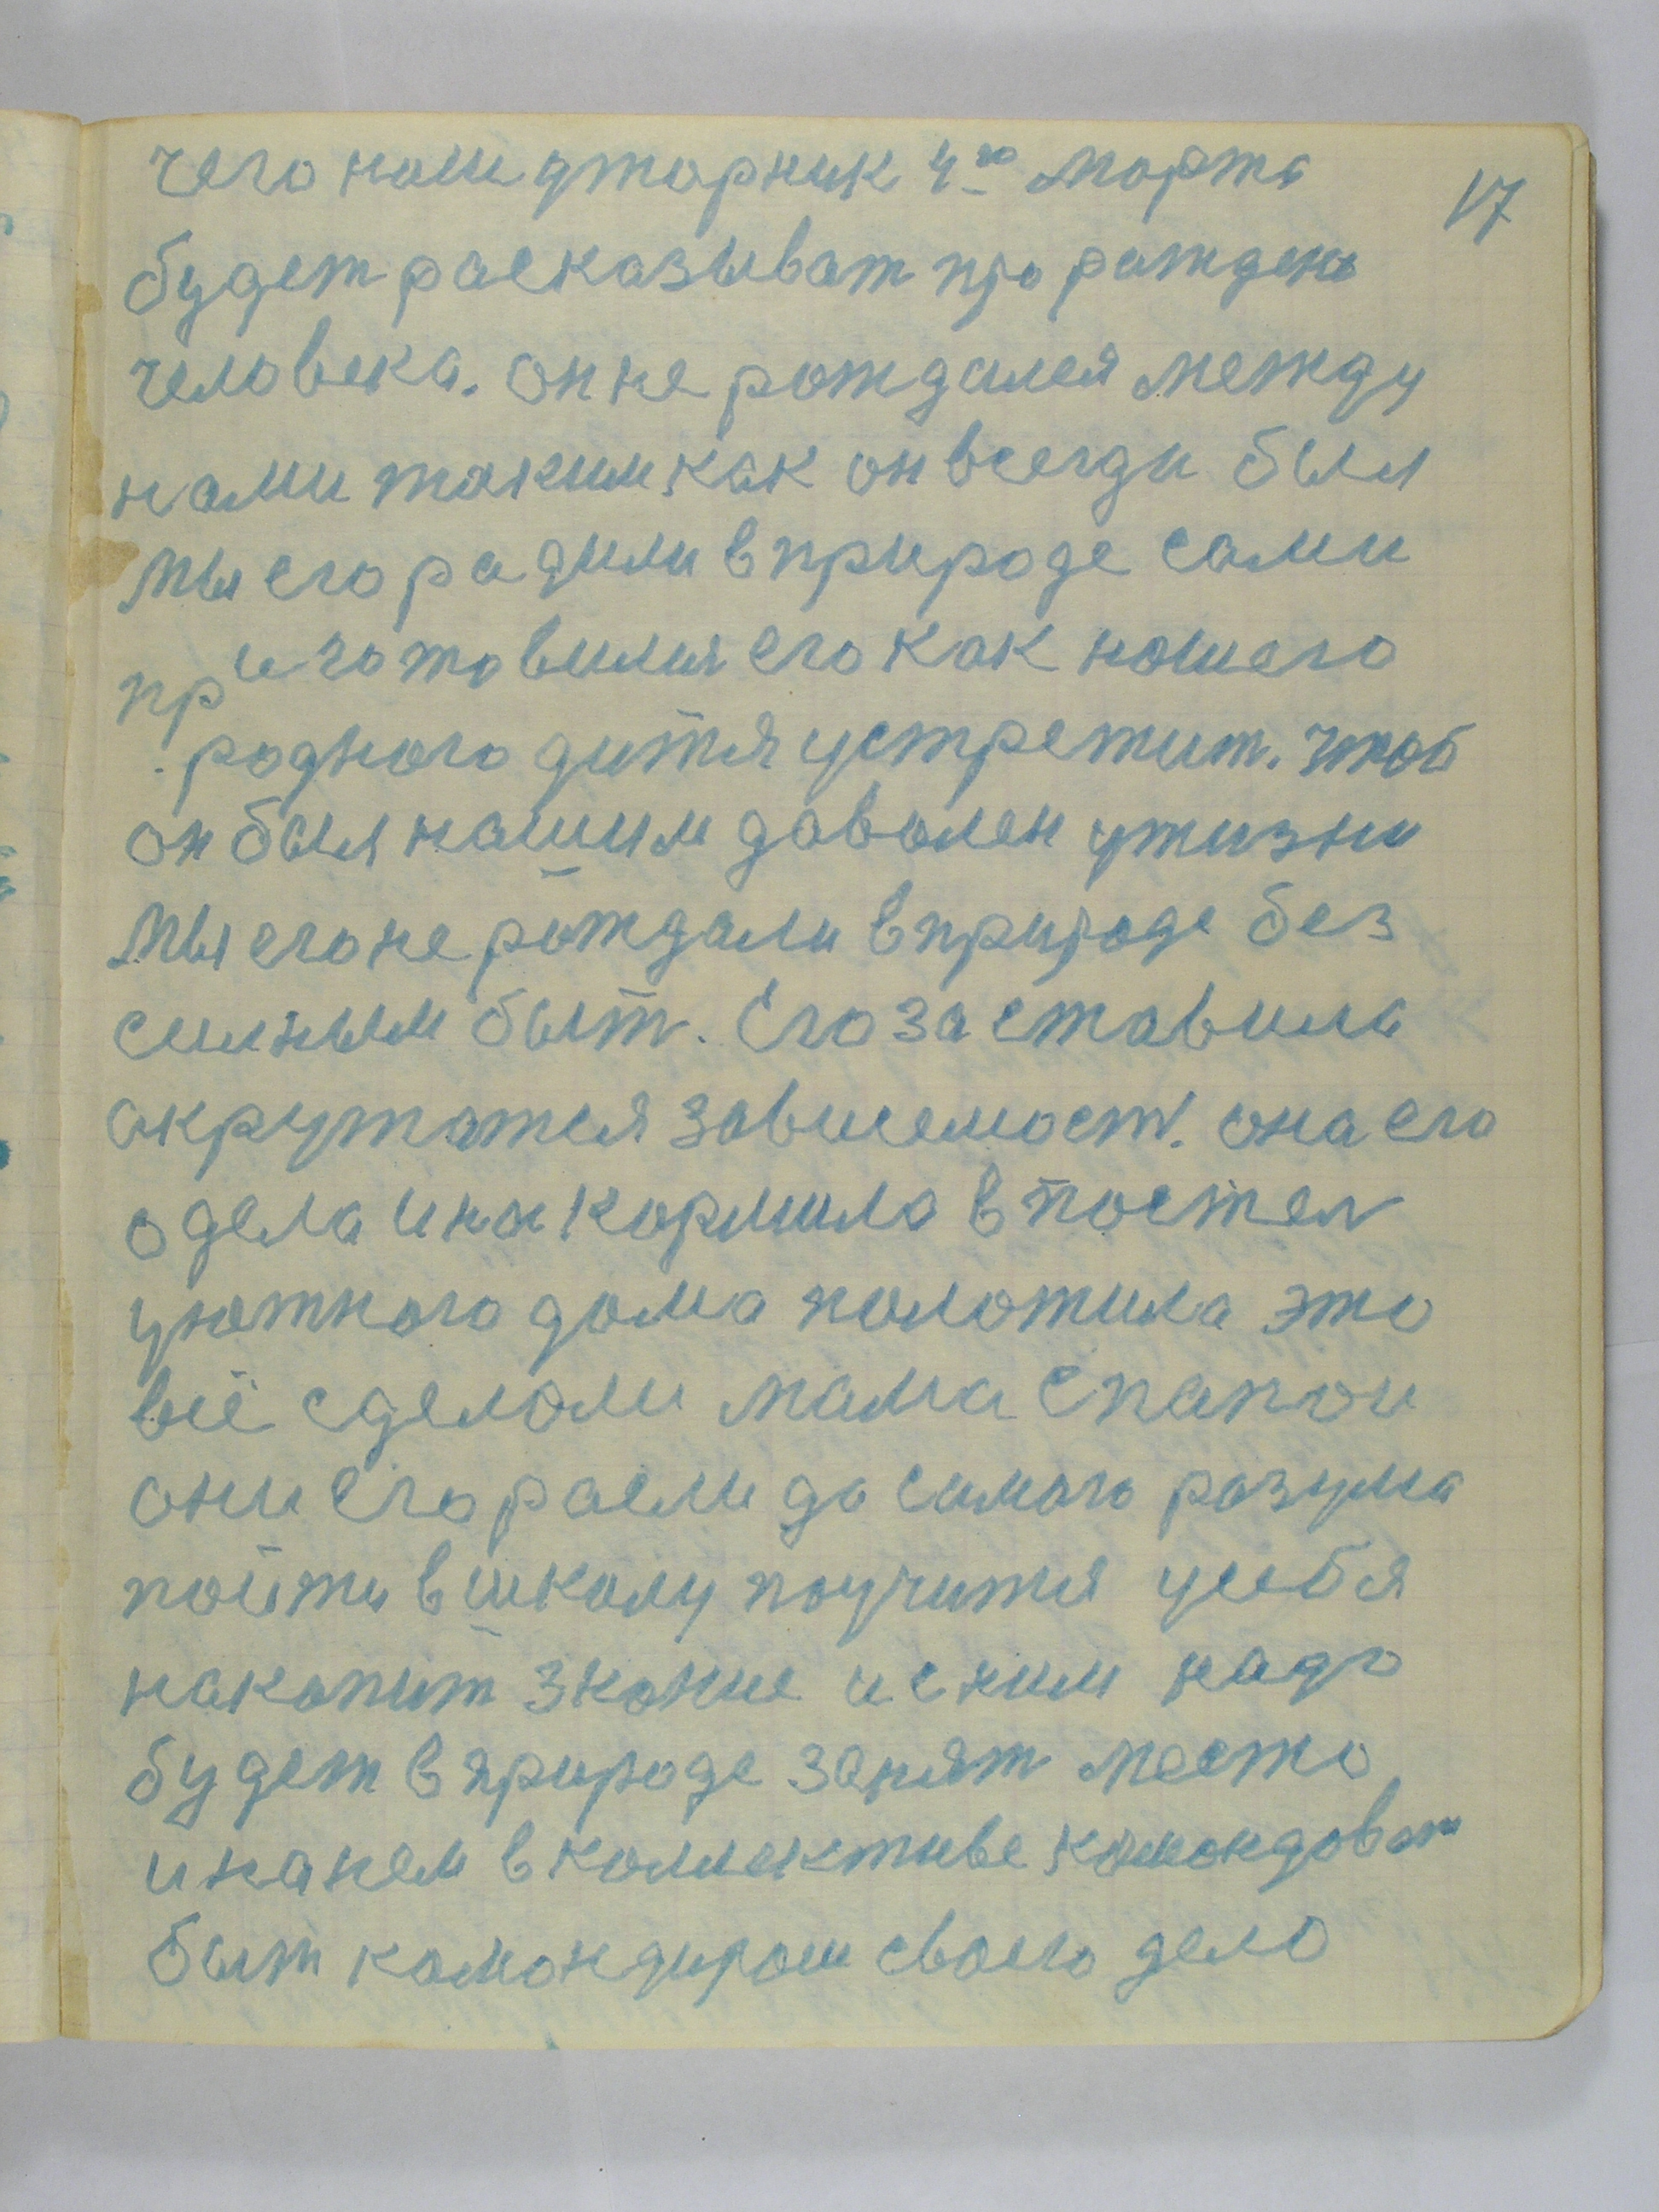 17
чего наш уторник 4го марта
будет расказыват про рождень
человека. он не рождался между
нами таким как он всегда был
мы его радили в природе сами
приготовилия его как нашего
родного дитя устретит. чтоб
он был нашим доволен ужизни
мы его не рождали в природе без
силным быт. Его заставила
акружатся зависемост. она его
одела и на кормила в постел
уютного дома положила это
всё сделали мама с папои
они его расли до самаго розума
пойти в школу поучится усебя
накопит знание и с ним надо
будет в природе занят место
и на нем в коллективе командоват
быт командиром своего дело